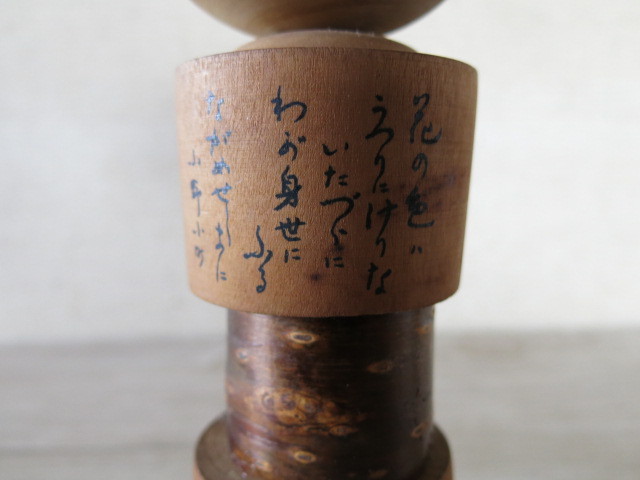 花の色ハ
うつりにけりな
いたづらに
わが身世に
ふる
ながめせしまに
小野小町